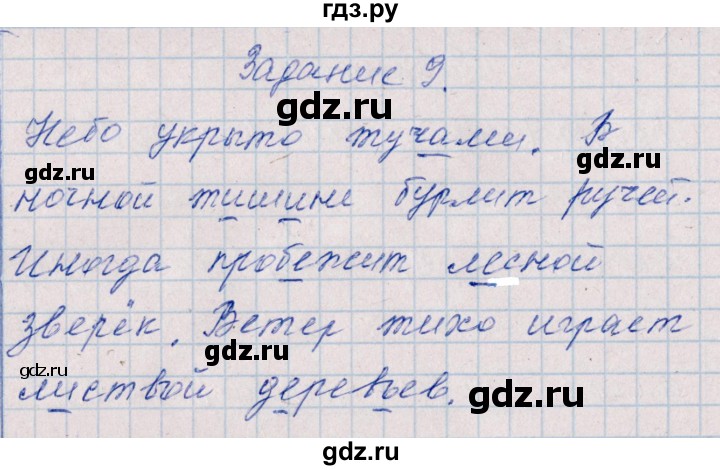 гдз.ру
Задание 9.
gdz.ru
gdz.ru
Небо укрыто тучами. В
gdz.ru
ночной тишине бурлит ручей.
Иногда пробежит лесной
gdz.ru
gdz.ru
зверёк. Ветер тихо играет
gdz.ru
листвой деревьев.
gdz.ru
gdz.ru